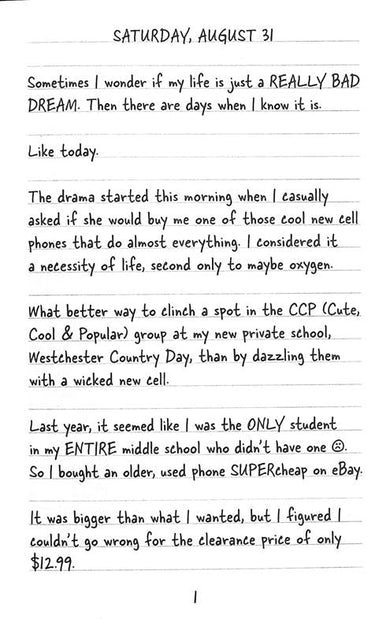 SATURDAY, AUGUST 31
Sometimes I wonder if my life is just a REALLY BAD
DREAM. Then there are days when I know it is.
Like today.
The drama started this morning when I casually
asked if she would buy me one of those cool new cell
phones that do almost everything. I considered it
a necessity of life, second only to maybe oxygen.
What better way to clinch a spot in the CCP (Cute,
Cool & Popular) group at my new private school,
Westchester Country Day, than by dazzling them
with a wicked new cell.
Last year, it seemed like I was the ONLY student
in my ENTIRE middle school who didn't have one ☹.
So I bought an older, used phone SUPERcheap on eBay.
It was bigger than what I wanted, but I figured I
couldn't go wrong for the clearance price of only
$12.99.
1